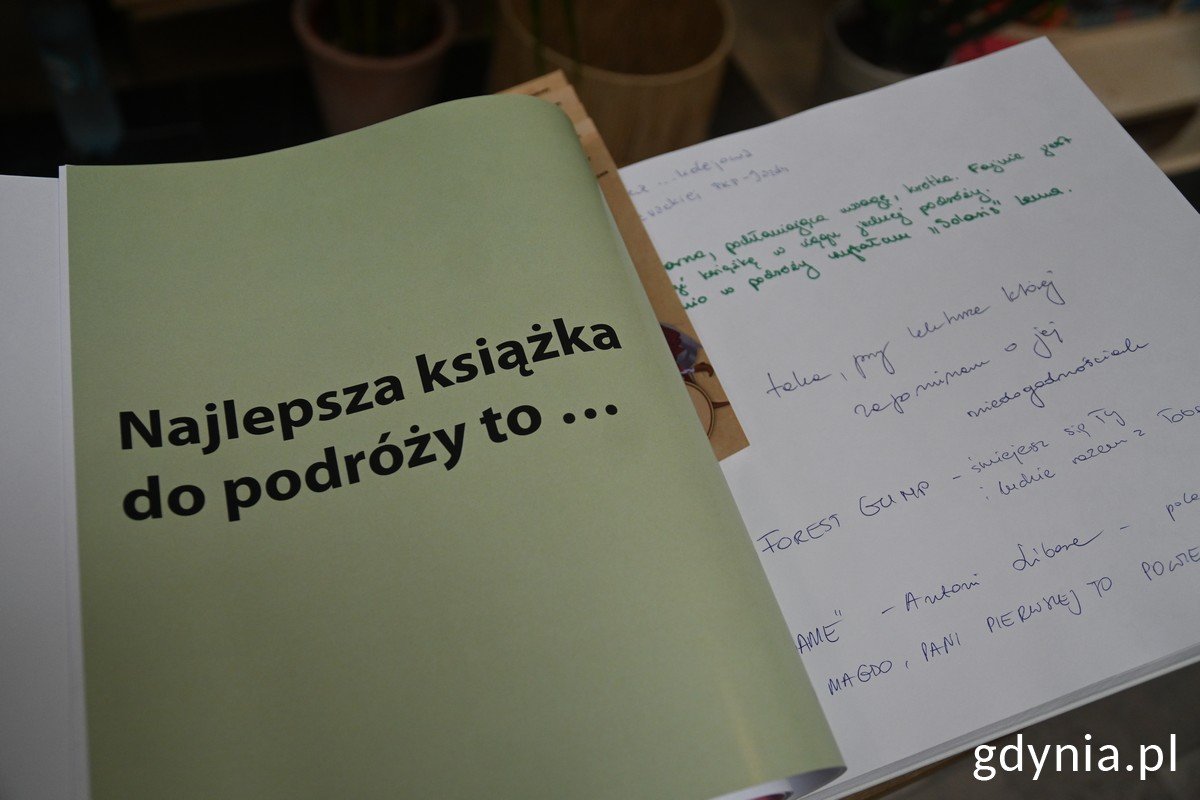 Najlepsza książka
do podróży to ...
... kolejowa
PKP-Jazdy
podtaniająca uwagę, krótka. Fajnie jest
książkę w ciągu jednej podróży.
w podróży wypałam "Solaris" Lema.
taka, przy lekturze której
zapominam o jej
niedogodnościach
FOREST GUMP - śmiejesz się Ty
i ludzie razem z Tobą
AME" - Antoni Libera -
MAGDO, PANI PIERWSZEJ TO POWIE
gdynia.pl